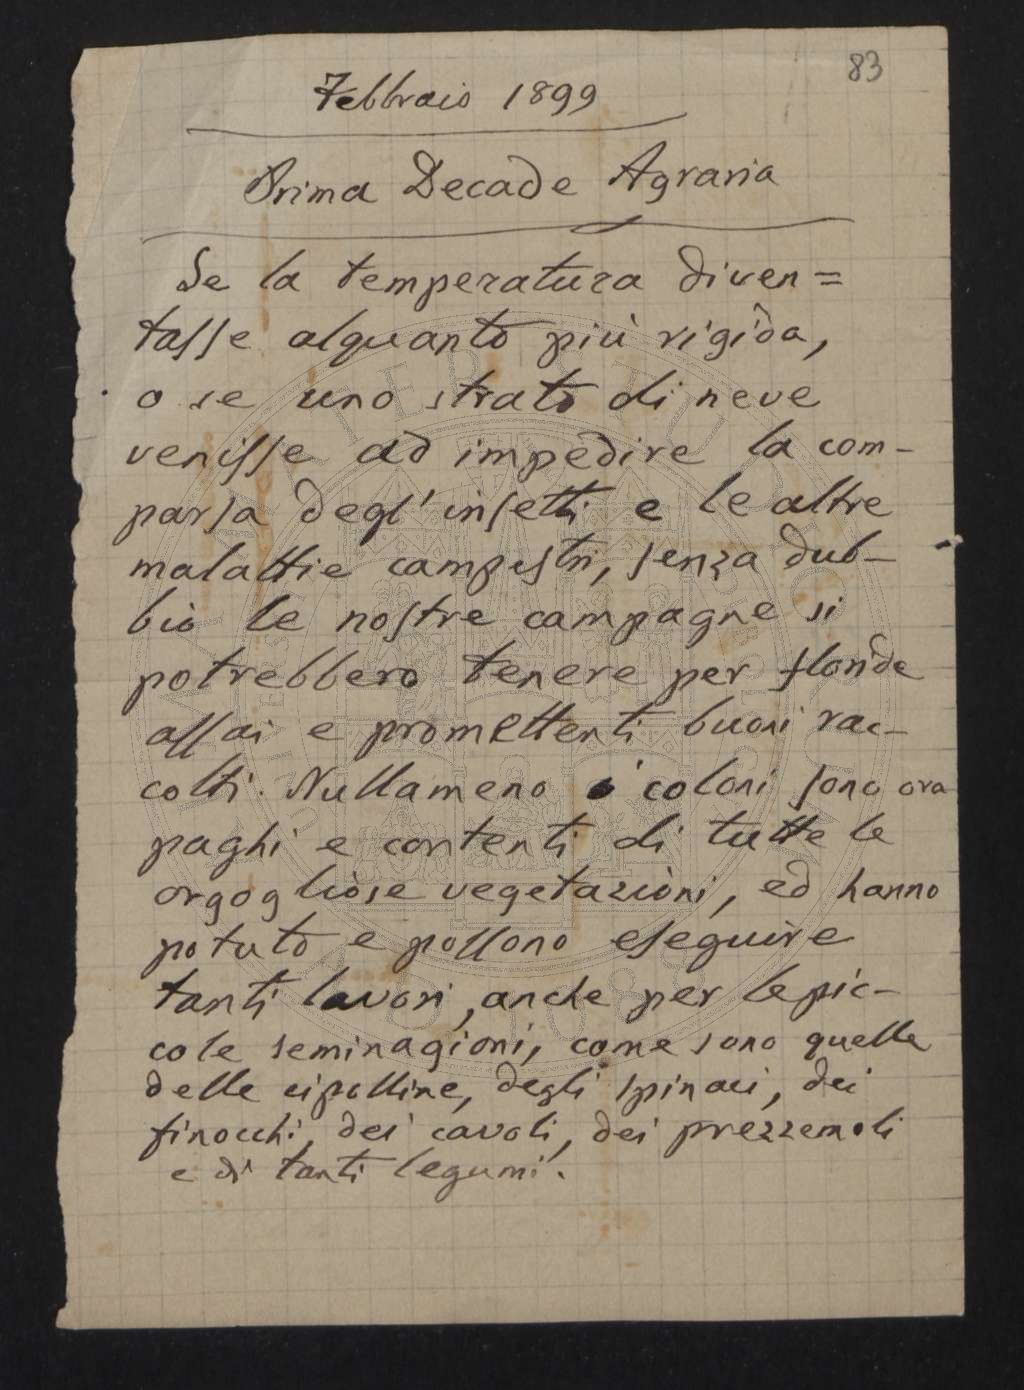 83
Febbraio 1899
Prima Decade Agraria
Se la temperatura diven=
tasse alquanto più rigida,
o se uno strato di neve
venisse ad impedire la com-
parsa degl'insetti e le altre
malattie campestri, senza dub-
bio le nostre campagne si
potrebbero tenere per floride
assai e promettenti buoni rac-
colti. Nullameno i coloni sono ora
paghi e contenti di tutte le
orgogliose vegetazioni, ed hanno
potuto e possono eseguire
tanti lavori, anche per le pic-
cole seminagioni, come sono quelle
delle cipolline, degli spinaci, dei
finocchi, dei cavoli, dei prezzemoli
e di tanti legumi.